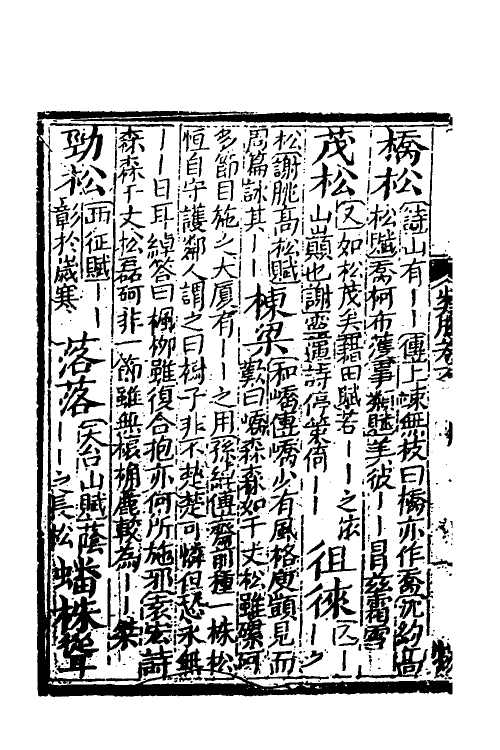 橋松 詩山有||傳上竦無枝曰橋亦作喬沈約高
松賦喬柯布濩事類賦美彼||冒茲霜雪
茂松 又如松茂矣藉田賦若||之依
山巔也謝靈運詩停策倚|| 徂徠 又|之
松謝朓高松賦
周篇詠其|| 棟梁 和嶠傳嶠少有風格庾顗見而
歎曰嶠森森如千丈松雖磥砢
多節目施之大廈有||之用孫綽傳齋前種一株松
恒自守護鄰人謂之曰樹子非不楚楚可憐但恐永無
||日耳綽答曰楓柳雖復合抱亦何所施邪袁宏詩
森森千丈松磊砢非一節雖無榱桷麗較為||桀
勁松 西征賦||
彰於歲寒 落落 天台山賦蔭
||之長松 蟠株聳